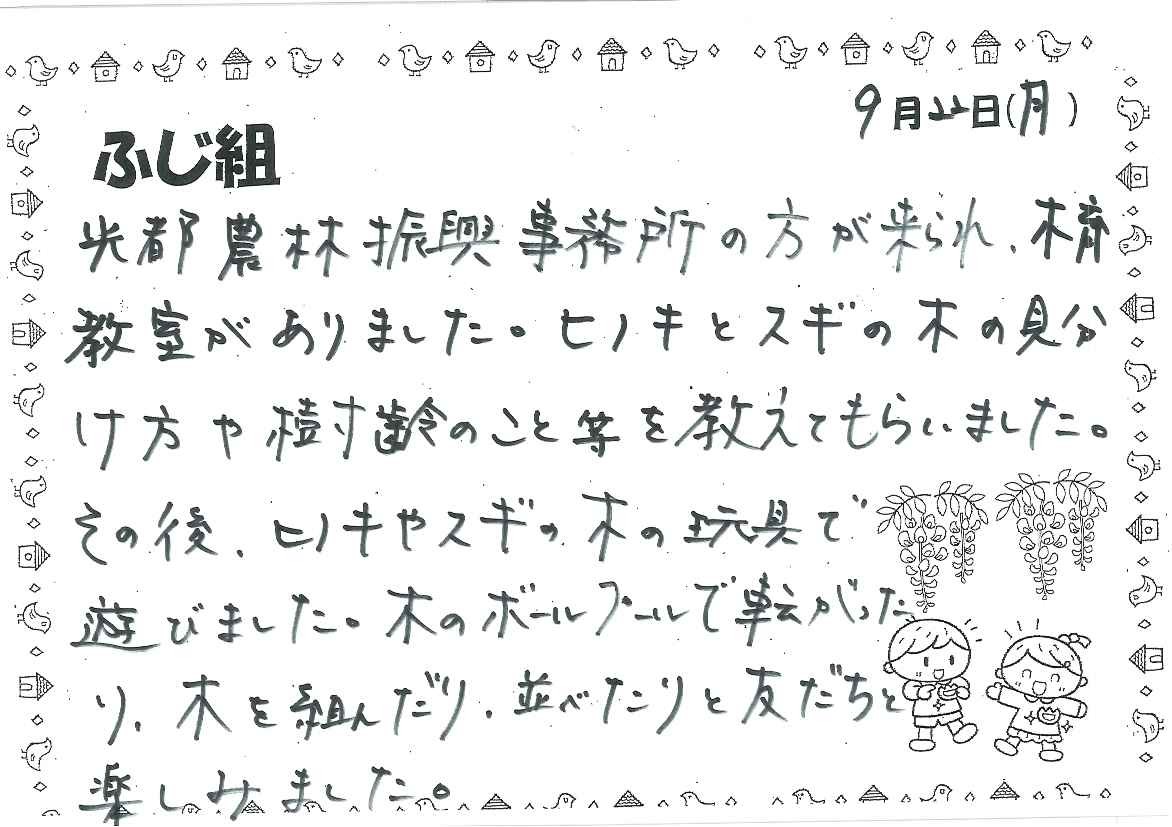 9月22日(月)
ふじ組
光都農林振興事務所の方が来られ、木育
教室がありました。ヒノキとスギの木の見分
け方や樹齢のこと等を教えてもらいました。
その後、ヒノキやスギの木の玩具で
遊びました。木のボールプールで転がった
り、木を組んだり、並べたりと友だちと
楽しみました。